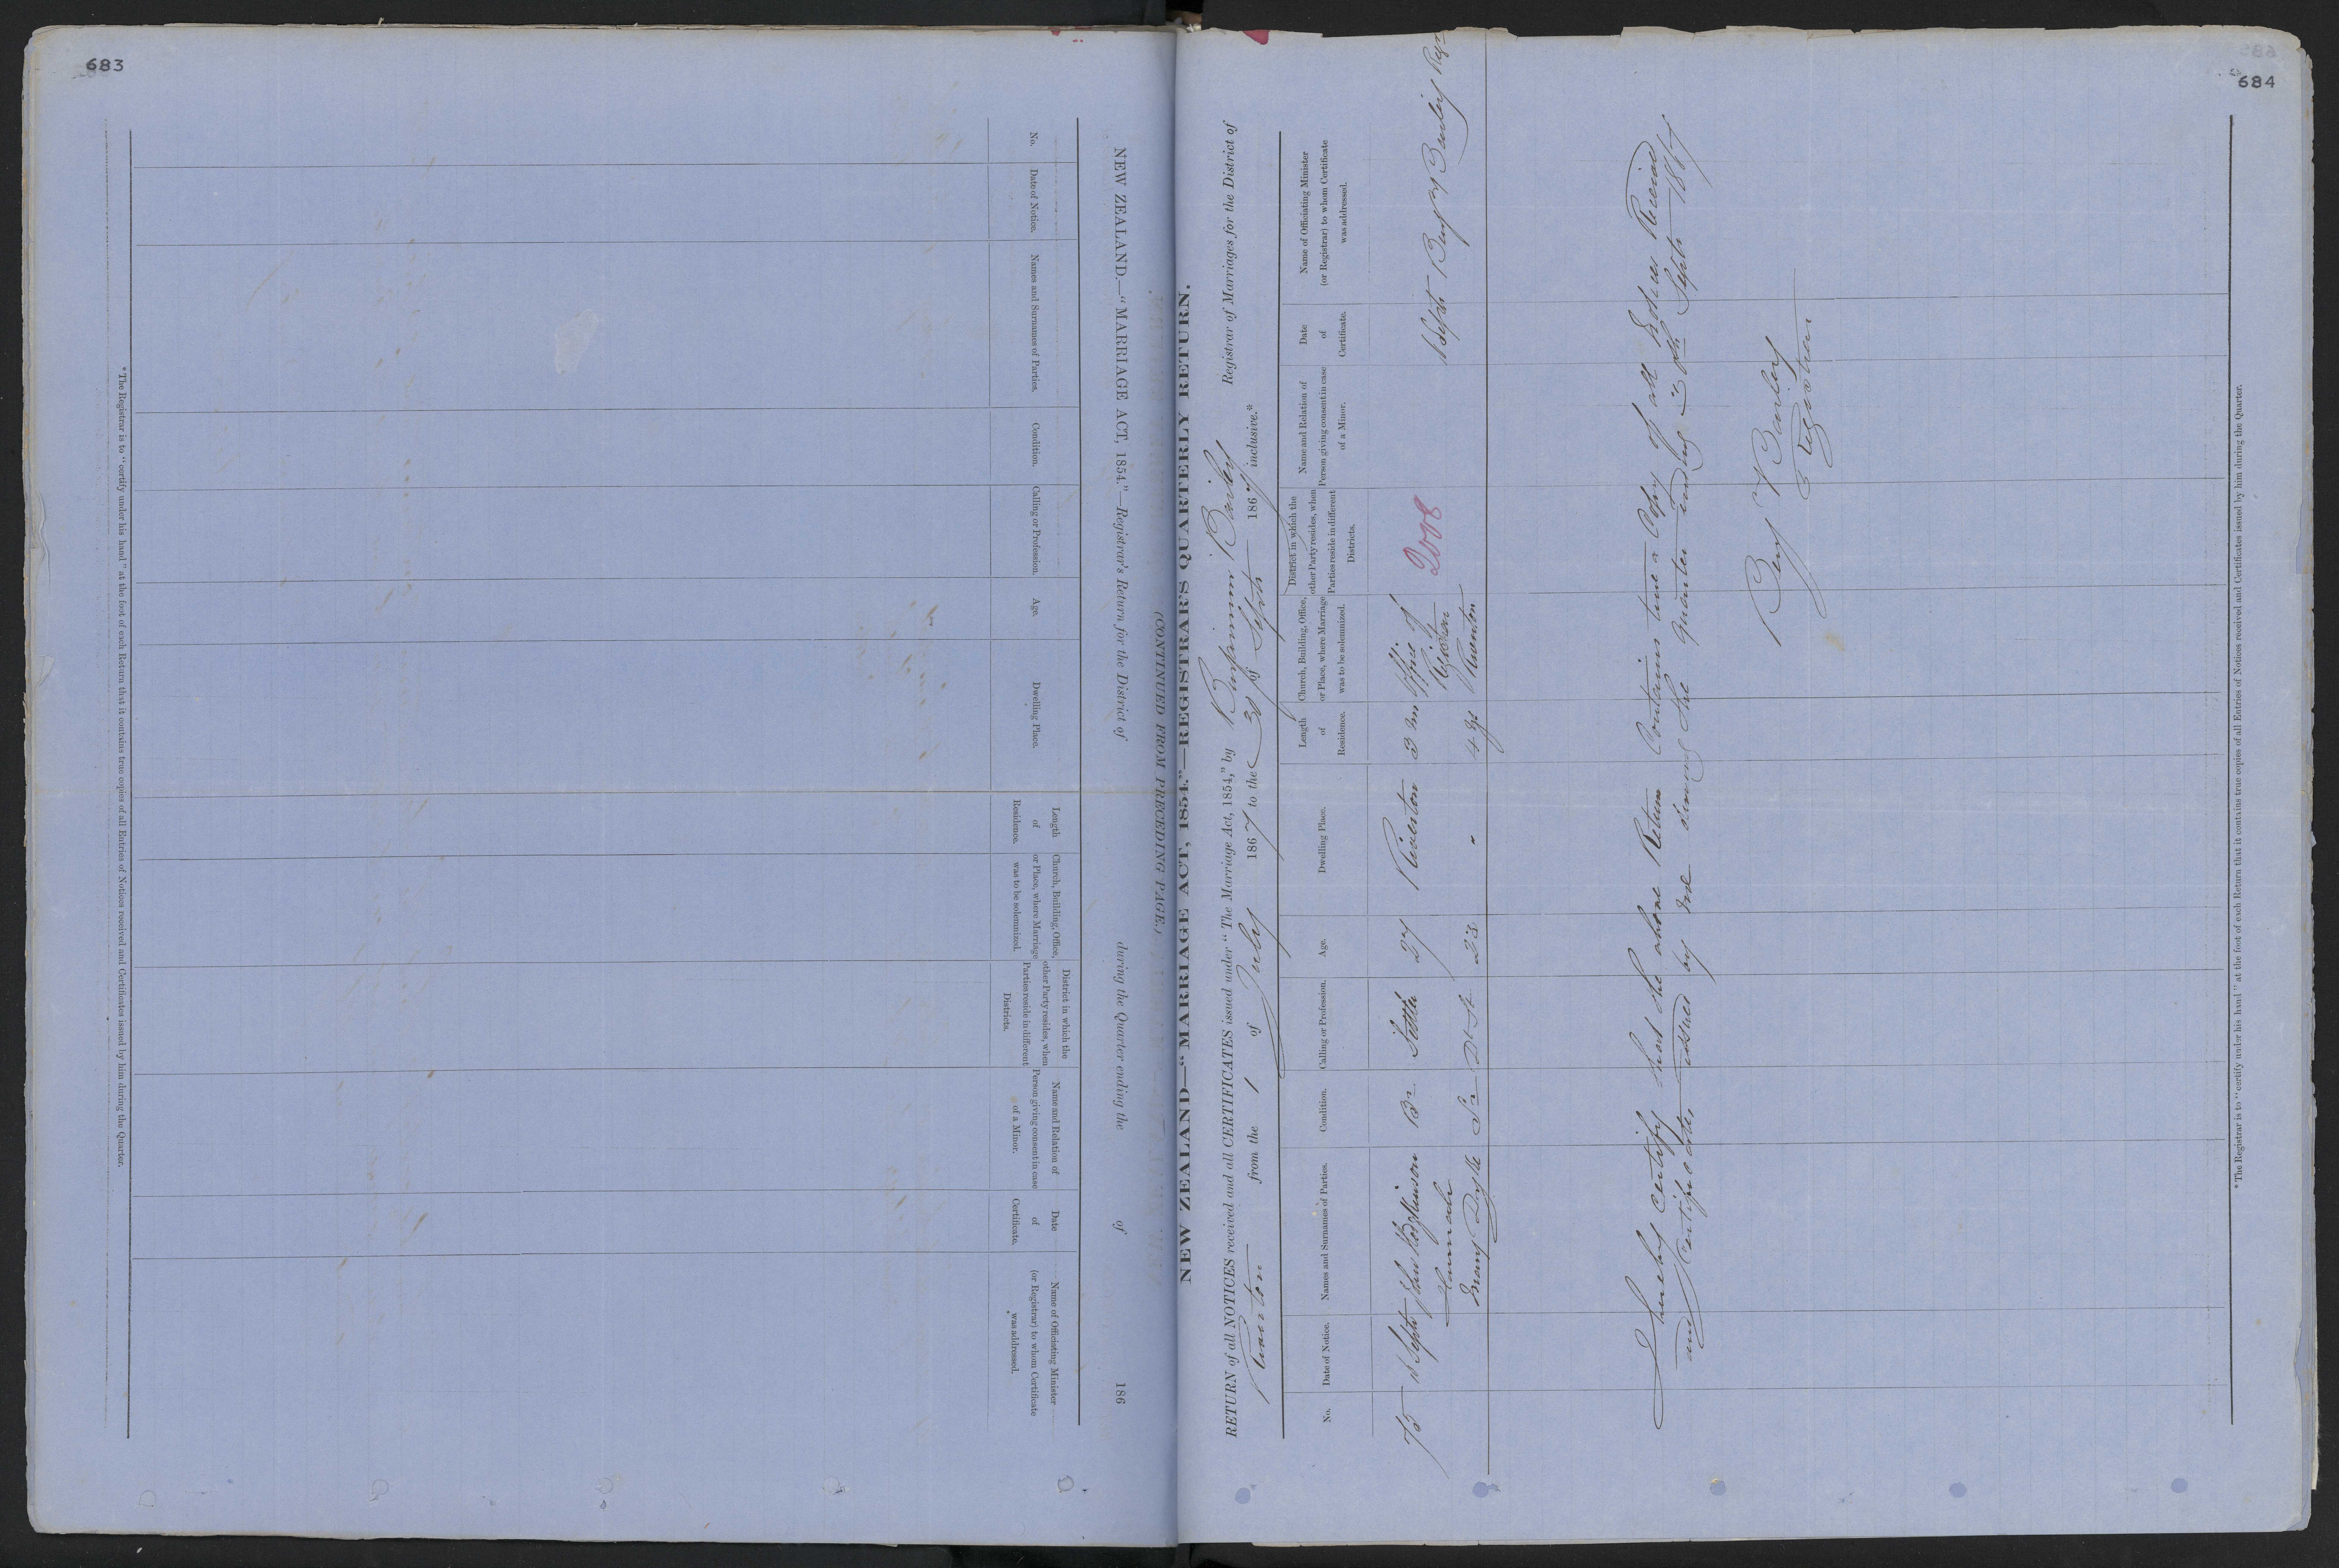 683
NEW ZEALAND.—"MARRIAGE ACT, 1854."—Registrar's Return for the District of during the Quarter ending the of 186
No.
Date of Notice.
Names and Surnames of Parties.
Condition.
Calling or Profession.
Age.
Dwelling Place.
Length
of
Residence.
Church, Building, Office,
or Place, where Marriage
was to be solemnized.
District in which the
other Party resides, when
Parties reside in different
Districts.
Name and Relation of
Person giving consent in case
of a Minor.
Date
of
Certificate.
Name of Officiating Minister
(or Registrar) to whom Certificate
was addressed.
* The Registrar is to "certify under his hand" at the foot of each Return that it contains true copies of all Entries of Notices received and Certificates issued by him during the Quarter.
(CONTINUED FROM PRECEDING PAGE.)
684
NEW ZEALAND—"MARRIAGE ACT, 1854."—REGISTRAR'S QUARTERLY RETURN.
RETURN of all NOTICES received and all CERTIFICATES issued under "The Marriage Act, 1854," by Benjamin Bailey Registrar of Marriages for the District of
Riverton from the 1 of July 1867 to the 30 Septr 1867 inclusive.*
No.
Date of Notice.
Names and Surnames of Parties.
Condition.
Calling or Profession.
Age.
Dwelling Place.
Length
of
Residence.
Church, Building, Office,
or Place, where Marriage
was to be solemnized.
District in which the
other Party resides, when
Parties reside in different
Districts.
Name and Relation of
Person giving consent in case
of a Minor.
Date
of
Certificate.
Name of Officiating Minister
(or Registrar) to whom Certificate
was addressed.
75 Septr Br Settler 27 Riverton 3 m Office of 2008 Septr Benjn Bailey Regr
Hannah Registrar
Mary Doyle Sr 23 " 4 Riverton
I hereby certify that the above Return Contains true a Copy of all Notices Received
and Certificates issued by me during the Quarter ending 30th Septr 1867
Benj Bailey
Registrar
* The Registrar is to "certify under his hand" at the foot of each Return that it contains true copies of all Entries of Notices received and Certificates issued by him during the Quarter.